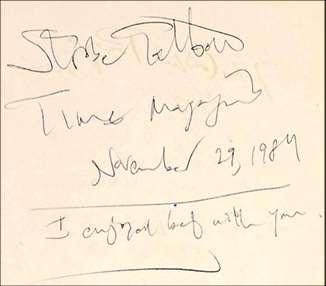 Strobe Talbott
Time Magazine
November 29, 1984
I enjoyed beef with you.